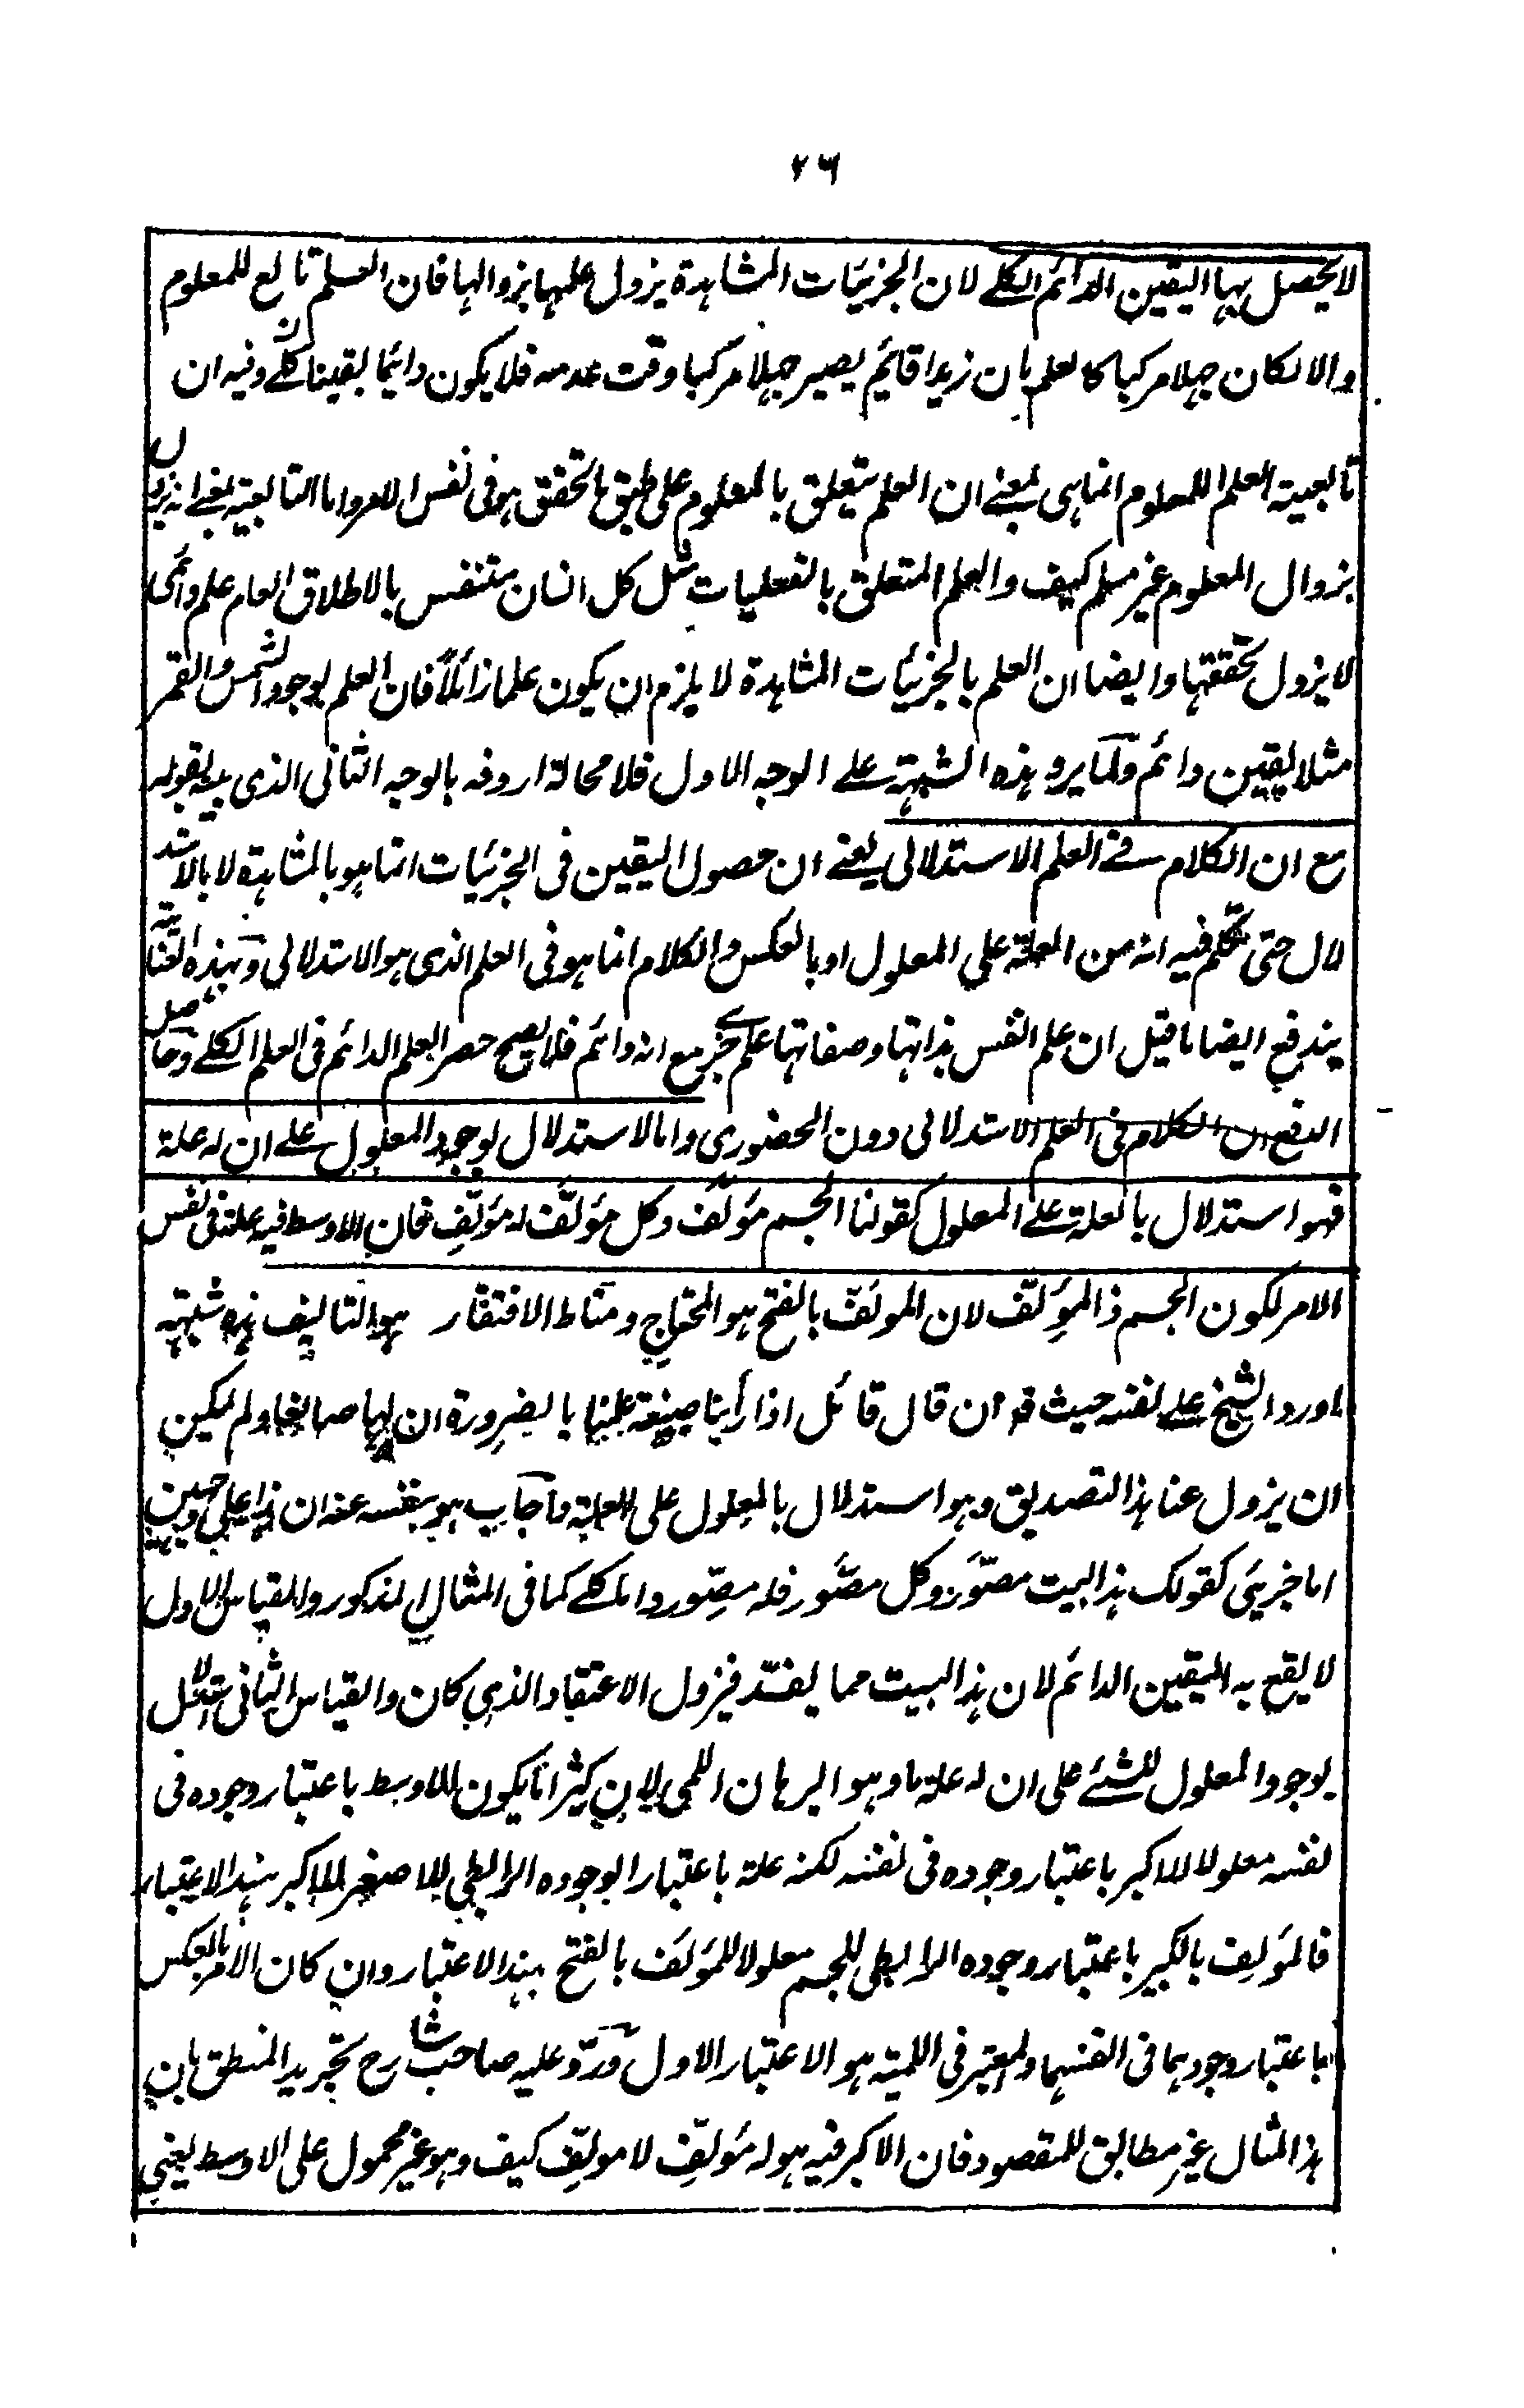 ٢٦
لا يحصل بها اليقين الدائم الكلے لان الجزئيات المشاهدة يزول علمها بزوالها فان العلم تابع للمعلوم
والا لكان جهلا مركبا كالعلم بان زيدا قايم يصير جهلا مركبا وقت عدمه فلا يكون دائما يقينا كليے وفيه ان
تابعية العلم للمعلوم انما هى بمعنے ان العلم يتعلق بالمعلوم على طبق ما تحقق هو فى نفس الامر واما التابعية بمعنے انه يزول
بزوال المعلوم غير مسلم كيف والعلم المتعلق بالفعليات مثل كل انسان متنفس بالاطلاق العام علم دائمى
لا يزول تحققها وايضا ان العلم بالجزئيات المشاهدة لا يلزم ان يكون علما زائلا فان العلم بوجود الشمس والقمر
مثلا يقين دائم ولما يرد هذه الشبهة علے الوجه الاول فلا محالة اردفه بالوجه الثانى الذى بينه بقوله
مع ان الكلام فے العلم الاستدلالى يعنے ان حصول اليقين فى الجزئيات انما هو بالمشاهدة لا بالاستد
لال حتى تكلم فيه انه من العلة على المعلول او بالعكس والكلام انما هو فى العلم الذى هو الاستدلالى وبهذه العناية
يندفع ايضا ما قيل ان علم النفس بذاتها وصفاتها علم جزئے مع انه دائم فلا يصح حصر العلم الدائم فى العلم الكلے وحاصل
الدفع ان الكلام فى العلم الاستدلالى دون الحضورى واما الاستدلال بوجود المعلول علے ان له علة
فهو استدلال بالعلة علے المعلول كقولنا الجسم مؤلَّف وكل مؤلَّف له مؤلِّف فان الاوسط فيه علة فى نفس
الامر لكون الجسم ذا المؤلِّف لان المولَّف بالفتح هو المحتاج ومناط الافتقار هو التاليف هذه شبهته
اورد الشيخ علے نفسه حيث قه ان قال قائل اذا رأينا صنعة علمنا بالضرورة ان لها صانعا ولم يمكن
ان يزول عنا هذا التصديق وهو استدلال بالمعلول على العلة فأجاب هو بنفسه عنه ان هذا على وجهين
اما جزيئى كقولك هذا البيت مصوَّر وكل مصوَّر فله مصوِّر واما كلے كما فى المثال المذكور والقياس الاول
لا يقع به اليقين الدائم لان هذا البيت مما يفسد فيزول الاعتقاد الذى كان والقياس الثانى استدلال
بوجود المعلول للشئے على ان له علة ما وهو البرهان اللمى لان كثيرا ما يكون للاوسط باعتبار وجوده فى
نفسه معلولا للاكبر باعتبار وجوده فى نفسه لكنه علة باعتبار الوجوده الرابطى للاصغر للاكبر بهذا الاعتبار
فالمؤلف بالكسر باعتبار وجوده الرابطى للجسم معلولا للمؤلف بالفتح بهذا الاعتبار وان كان الامر بالعكس
باعتبار وجودهما فى انفسهما والمعتبر فى اللمية هو الاعتبار الاول وردّ عليه صاحب شارح تجريد المنطق بان
هذا المثال غير مطابق للمقصود فان الاكبر فيه هو له مؤلِّف لا مولِّف كيف وهو غير محمول على الاوسط يعنى